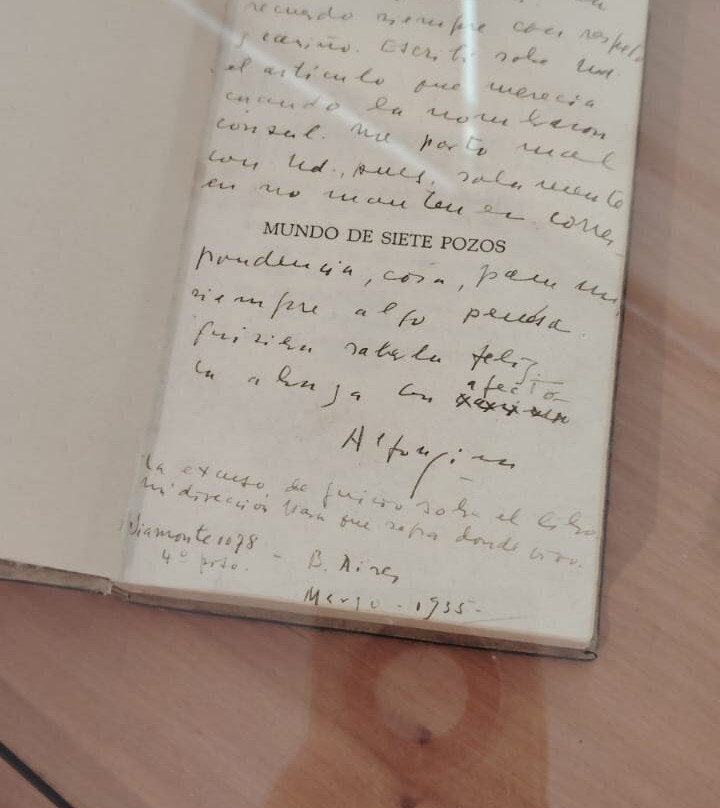 recuerdo siempre con respeto
y cariño. Escribí sobre Ud.
el artículo que merecía
cuando la nombraron
cónsul. Me porto mal
con Ud., pues, solamente
en no mantener corres-
MUNDO DE SIETE POZOS
pondencia, cosa, para mí,
siempre algo penosa.
Quisiera saberla feliz.
La abraza con afecto
Alfonsina
La excuso de juicio sobre el libro.
Mi dirección para que sepa donde vivo.
Viamonte 1078
4º piso. - B. Aires
Marzo - 1935 -